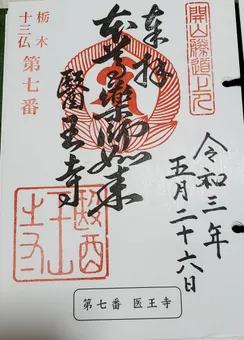 開山勝道上人
奉拝
令和三年
五月二十六日
本尊薬師如来
醫王寺
栃木
十三仏
第七番
第七番 医王寺